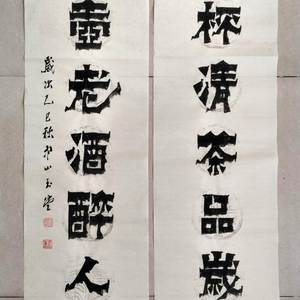 杯清茶品歲
壺老酒醉人
歲次乙巳秋山玉堂